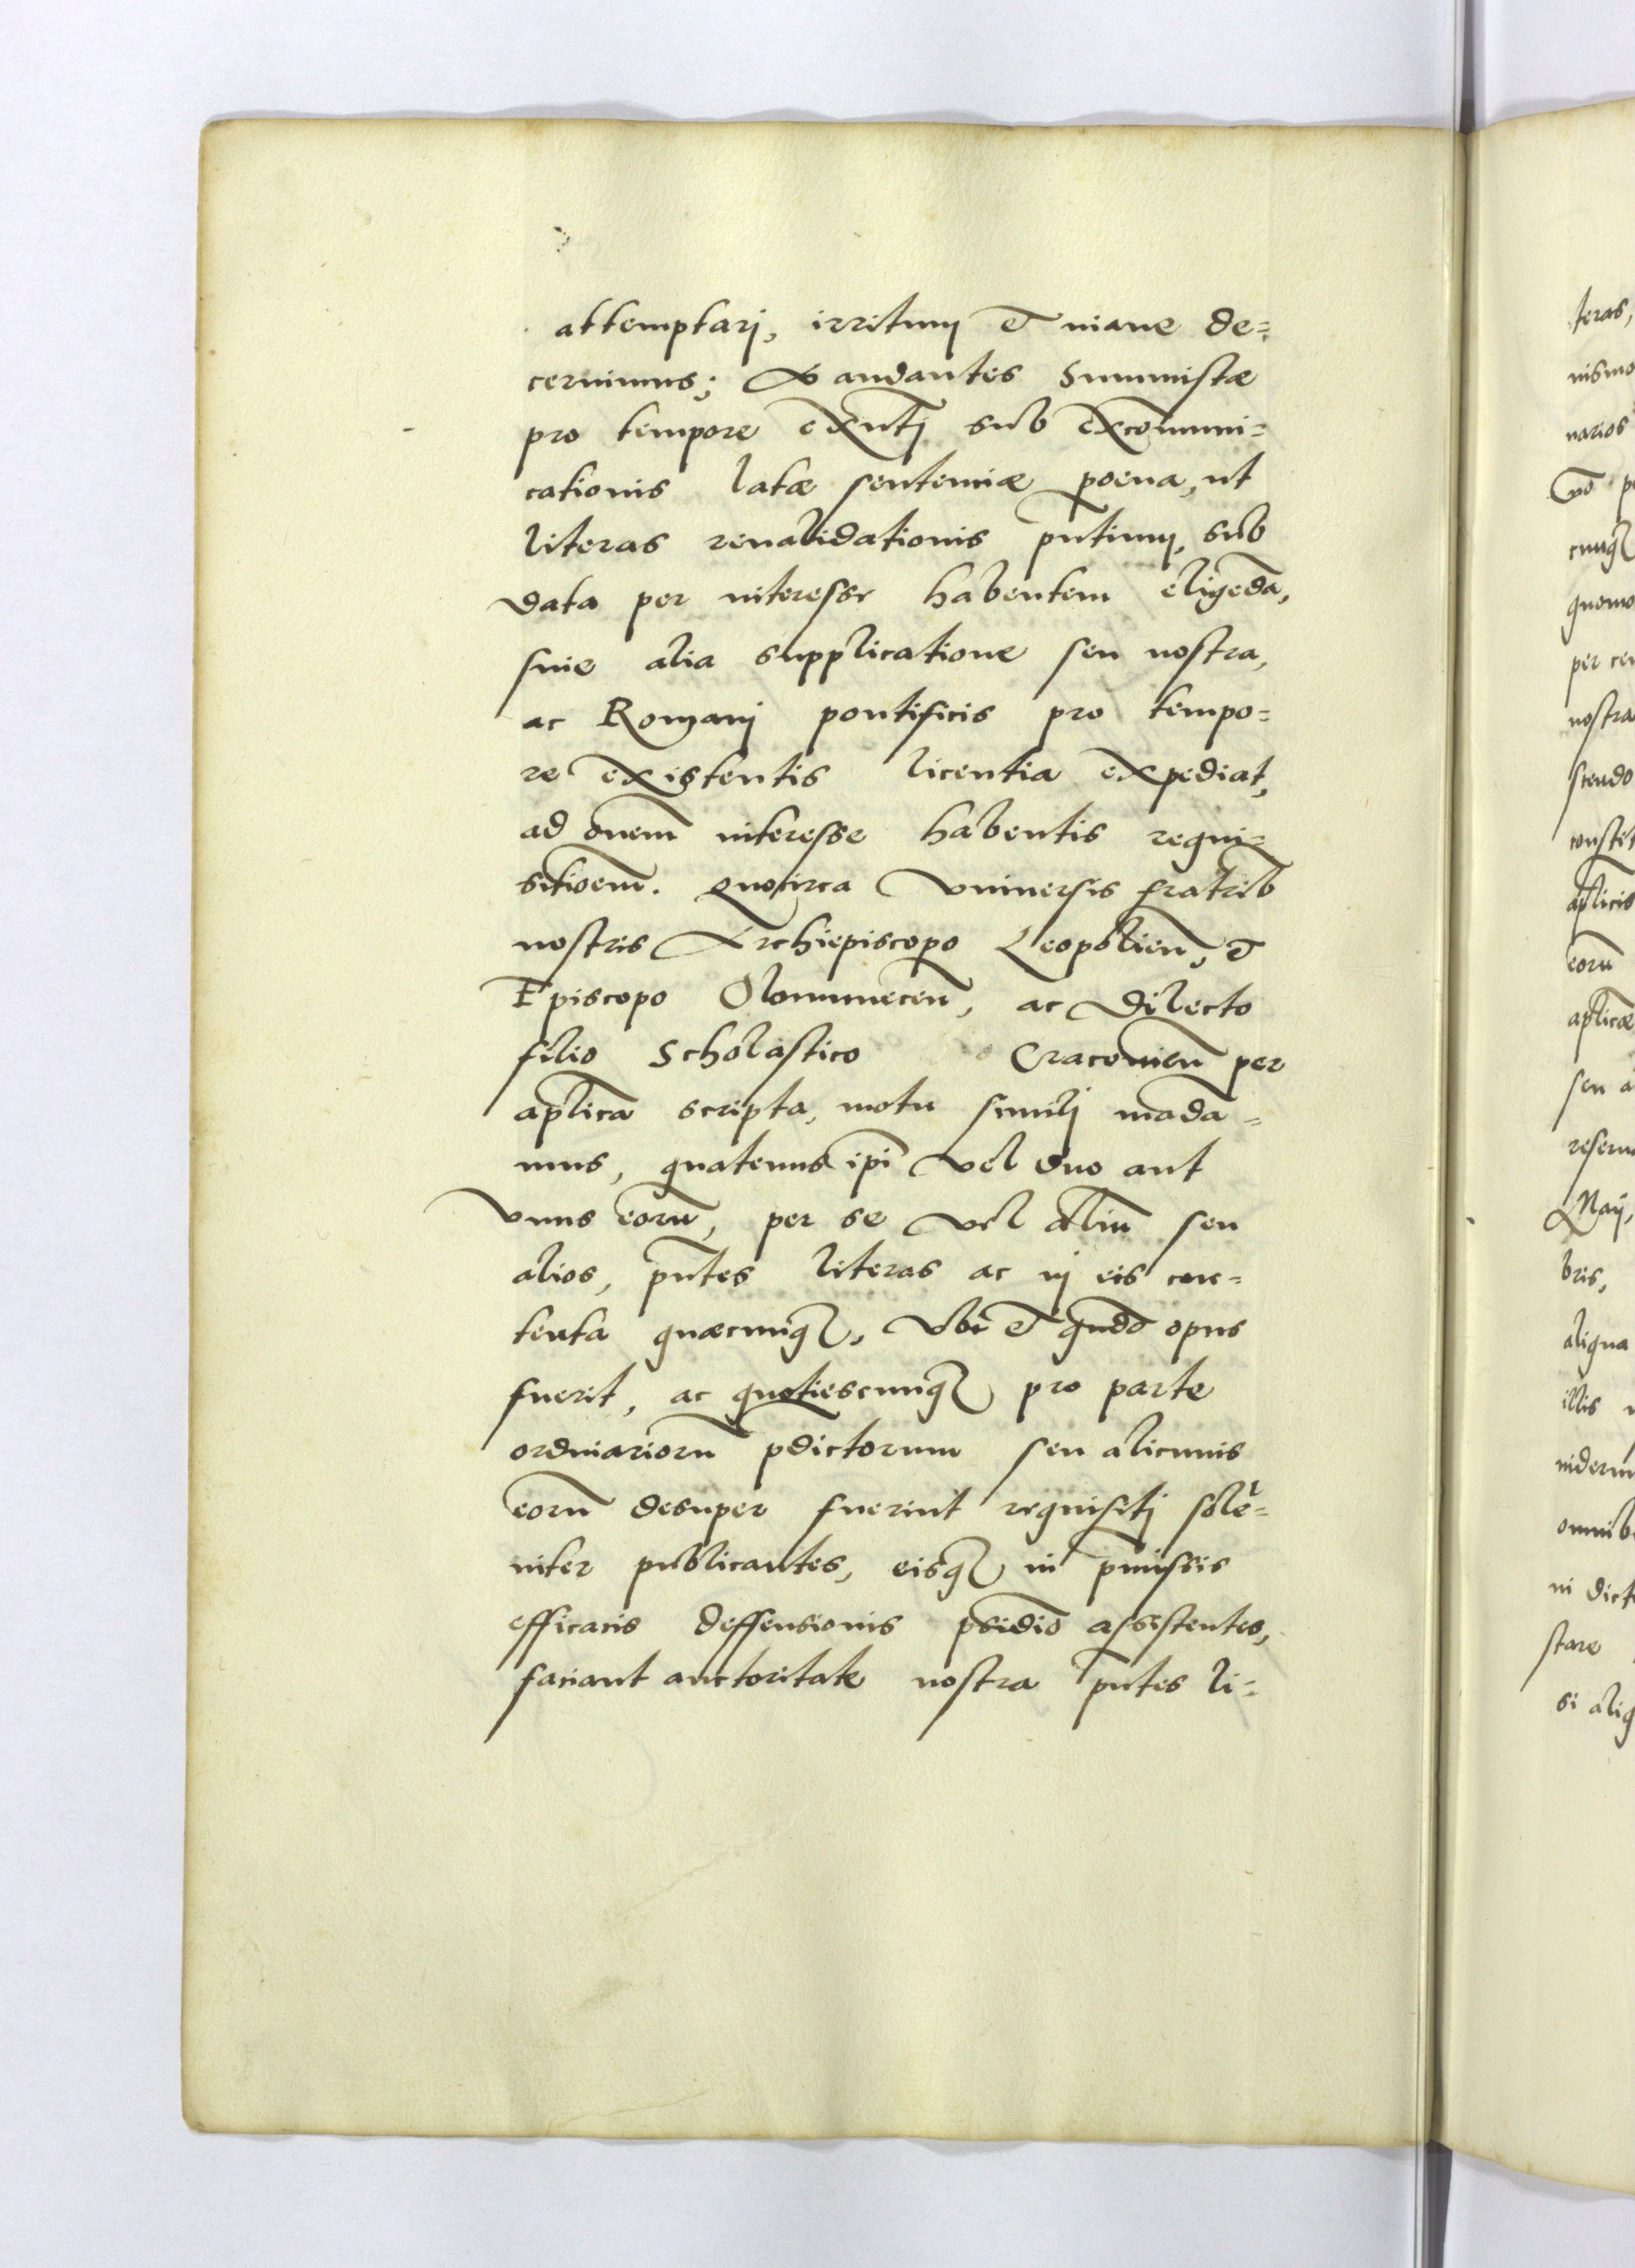 attemptarj, irritum et inane de=
cernimus; Mandantes Summistæ
pro tempore exñtj sub excõmuni=
cationis latæ sententiæ poena, ut
literas reualidationis pñtium, sub
data per interesse habentem eligẽda,
siue alia supplicatione seu nostra,
ac Romanj pontificis pro tempo=
re existentis licentia expediat,
ad õnem interesse habentis requi=
sitioem̃. Quocirca Vniuersis fratrib̃
nostris Archiepiscopo Leopolieñ, et
Episcopo Olomuneceñ, ac Dilecto
filio Scholastico Cracouieñ per
ap̃lica scripta, motu similj mãda=
mus, quatenus ip̃i vel duo aut
vnus eorũ, per se vel aliũ seu
alios, pñtes literas ac in eis con=
tenta quæcunq3, vbi et qũdo opus
fuerit, ac quotiescunq3 pro parte
ordinariorũ p̃dictorum seu alicuius
eorũ desuper fuerint requisitj solẽ=
niter publicantes, eisq3 in p̃missis
efficacis deffensionis p̃sidio assistentes,
faciant auctoritate nostra pñtes li=
teras,
narios
cunq3
quomo
per ce
nostra
scendo
constit
ap̃licis
eorũ
ap̃licæ
seu a
reserua
Maij,
bris,
aliqua
illis
omnib
in dict
stare
si aliq